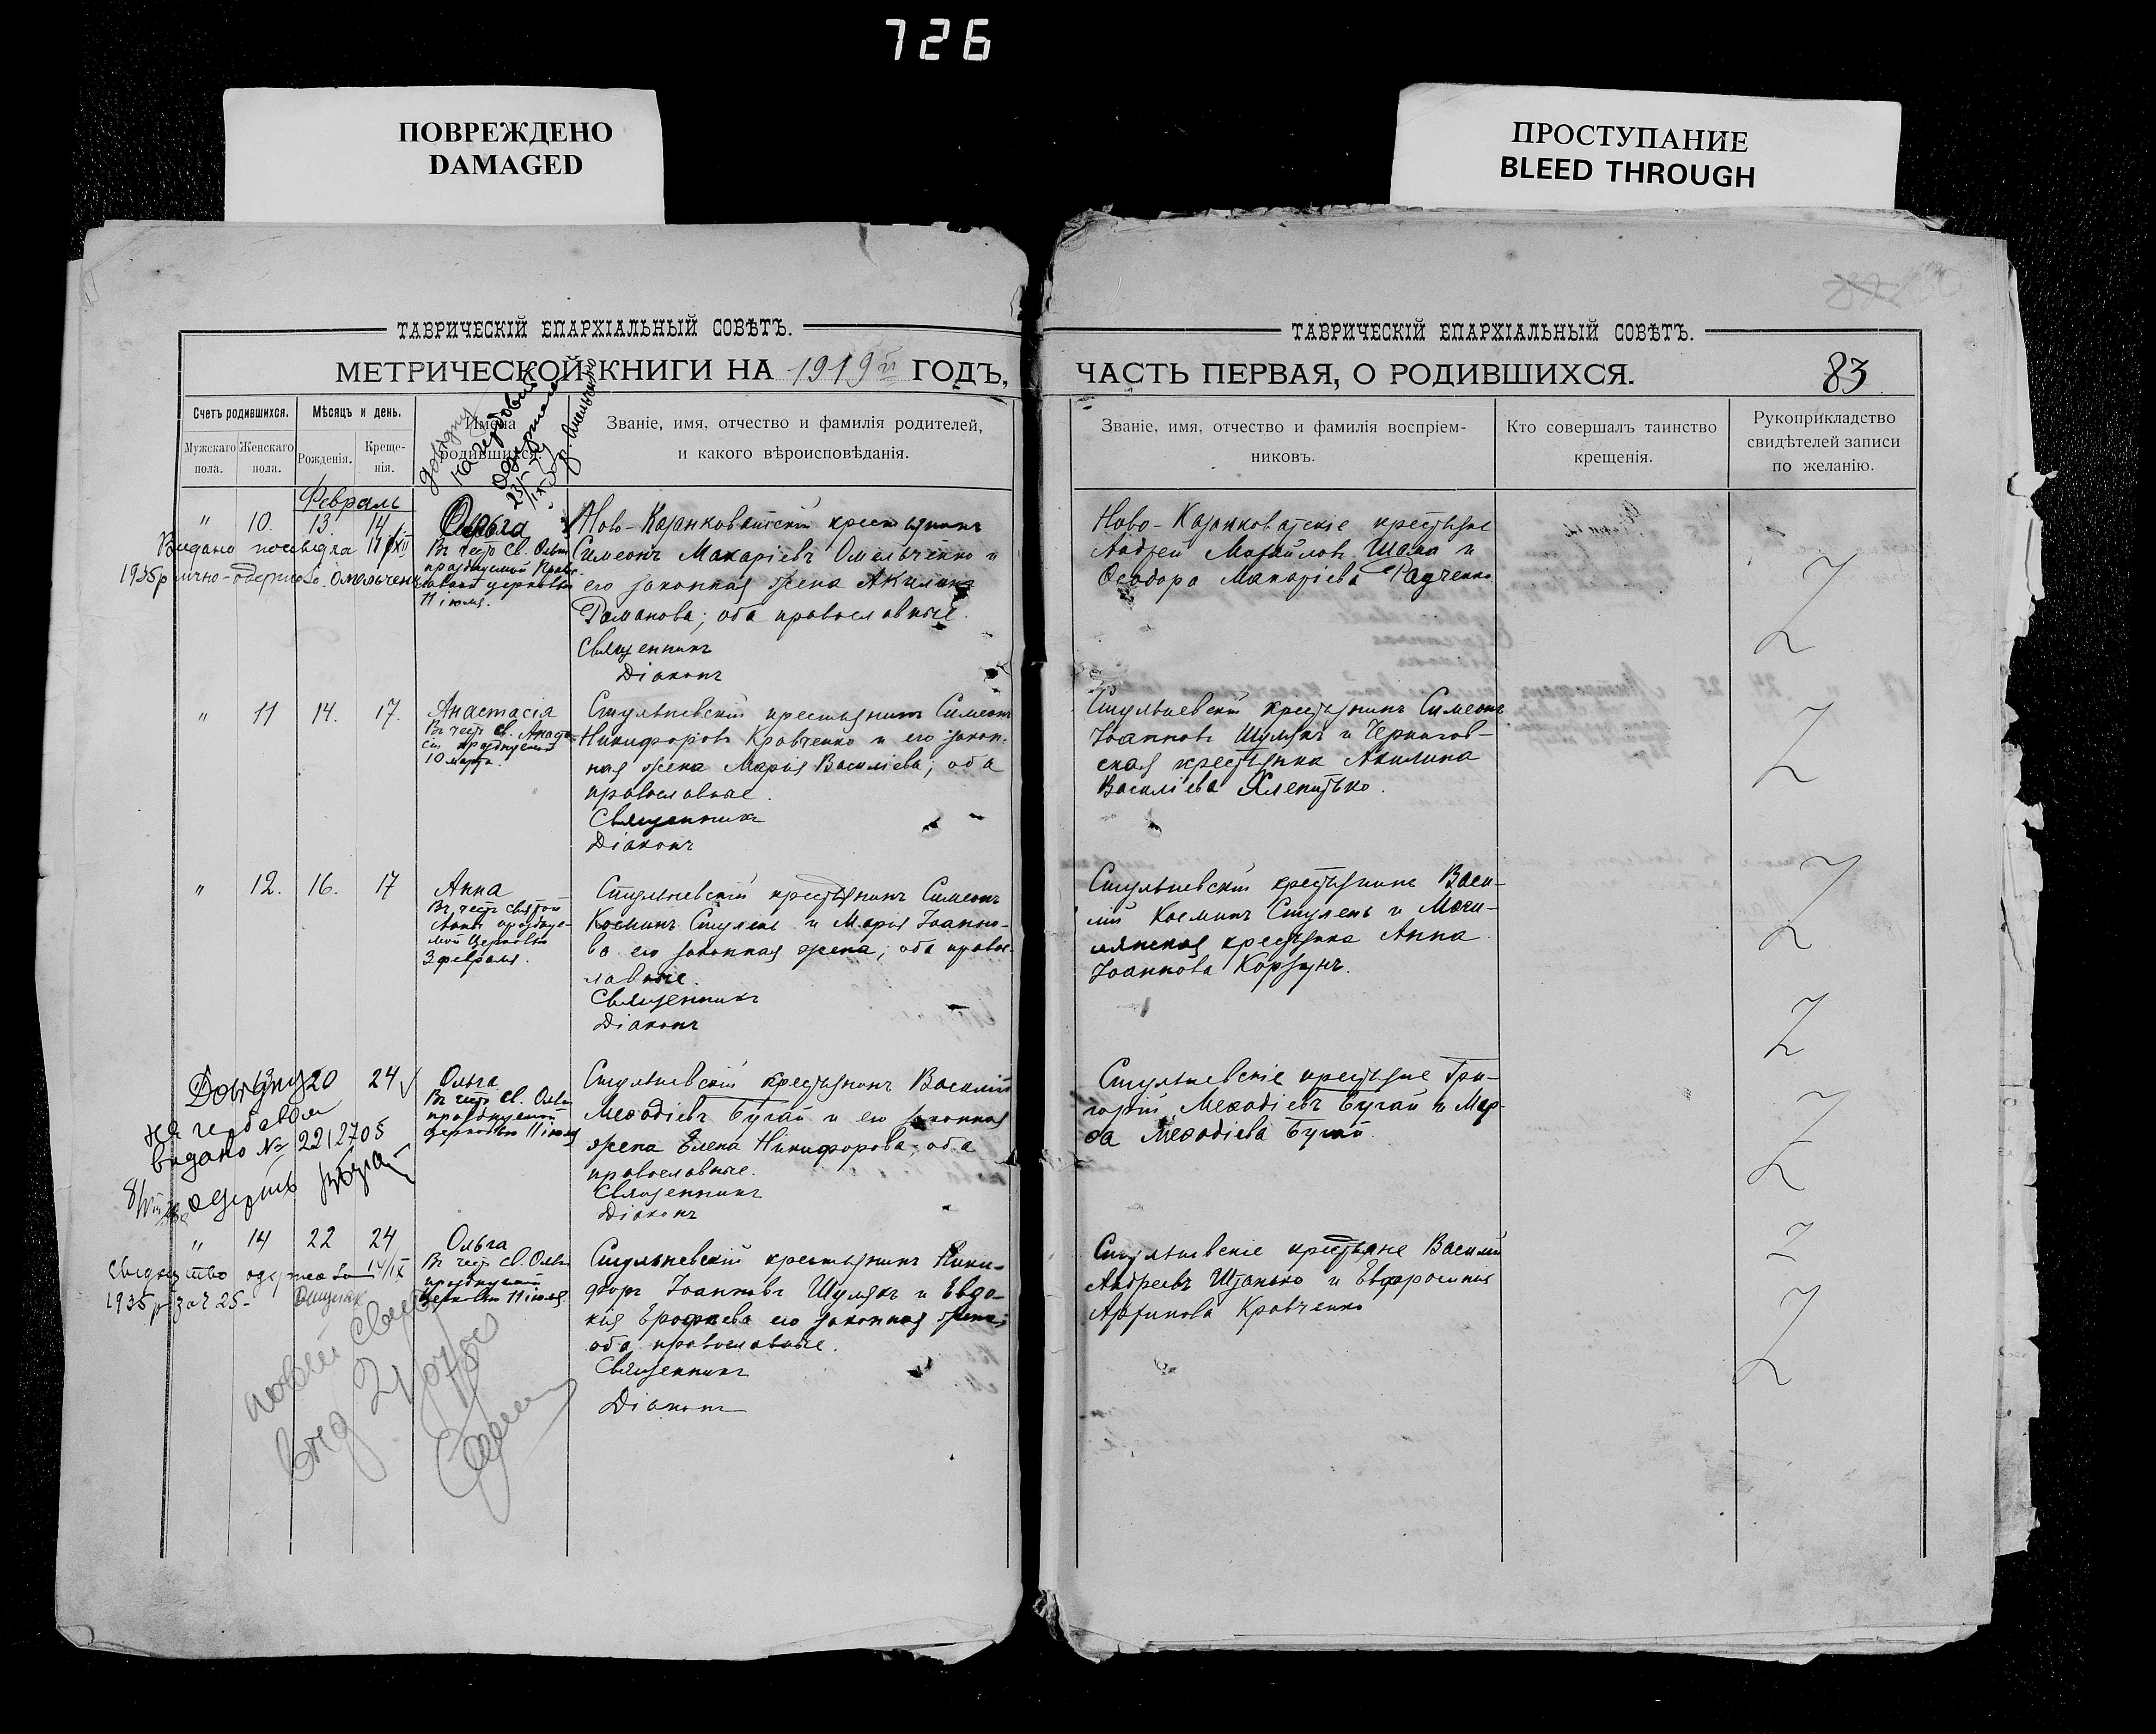 726
ПОВРЕЖДЕНО
DAMAGED
ПРОСТУПАНИЕ
BLEED THROUGH
ТАВРИЧЕСКІЙ ЕПАРХІАЛЬНЫЙ СОВѢТЪ.
МЕТРИЧЕСКОЙ КНИГИ НА 1919й ГОДЪ,
Счетъ родившихся.
Мѣсяцъ и день.
Имена родившихся.
Званіе, имя, отчество и фамилія родителей,
и какого вѣроисповѣданія.
Мужскаго пола.
Женскаго пола.
Рожденія.
Крещенія.
Февраль
" 10. 13. 14 Ольга
Въ честь св. Ольги
празднуемой
11 іюля.
Ново-Казанковатскій крестьянинъ
Симеонъ Макаріевъ Омельченко и
его законная жена Акилина
Романова; оба православные.
Священникъ
Діаконъ
Видано посвідка
1935р
" 11 14. 17. Анастасія
Въ честь св. Анаста-
сіи празднуемой
10 марта.
Стульневскій крестьянинъ Симеонъ
Никифоровъ Кравченко и его закон-
ная жена Марія Василіева; оба
православные.
Священникъ
Діаконъ
" 12. 16. 17 Анна
Въ честь святой
Анны празднуе-
мой Церковью
3 февраля.
Стульневскій крестьянинъ Симеонъ
Косминъ Стулень и Марія Іоанно-
ва его законная жена; оба правос-
лавные.
Священникъ
Діаконъ
20 24 Ольга
Въ честь св. Ольги
празднуемой
церковью 11 іюля
Стульневскій крестьянинъ Василій
Меѳодіевъ Бугай и его законная
жена Елена Никифорова; оба
православные.
Священникъ
Діаконъ
Довідку
на гербовом
видано № 2212705
" 14 22 24 Ольга
Въ честь св. Ольги
празднуемой
Церковью 11 іюля
Стульневскій крестьянинъ Ники-
форъ Іоанновъ Шулякъ и Евдо-
кія Ерофеева его законная жена;
оба православные.
Священникъ
Діаконъ
14/IX
1935р
ТАВРИЧЕСКІЙ ЕПАРХІАЛЬНЫЙ СОВѢТЪ.
ЧАСТЬ ПЕРВАЯ, О РОДИВШИХСЯ.
83
Званіе, имя, отчество и фамилія воспріем-
никовъ.
Кто совершалъ таинство
крещенія.
Рукоприкладство
свидѣтелей записи
по желанію.
Ново-Казанковатскіе крестьяне
Андрей Михайловъ Шака и
Ѳеодора Макаріева Радченко
Стульневскій крестьянинъ Симеонъ
Іоанновъ Шулякъ и Чернигов-
ская крестьянка Акилина
Василіева Хлепитько.
Стульневскій крестьянинъ Васи-
лій Косминъ Стулень и Моги-
лянская крестьянка Анна
Іоаннова Корзунъ.
Стульневскіе крестьяне Гри-
горій Меѳодіевъ Бугай и Мар-
ѳа Меѳодіева Бугай.
Стульневскіе крестьяне Василій
Андреевъ и Евфросинія
Кравченко